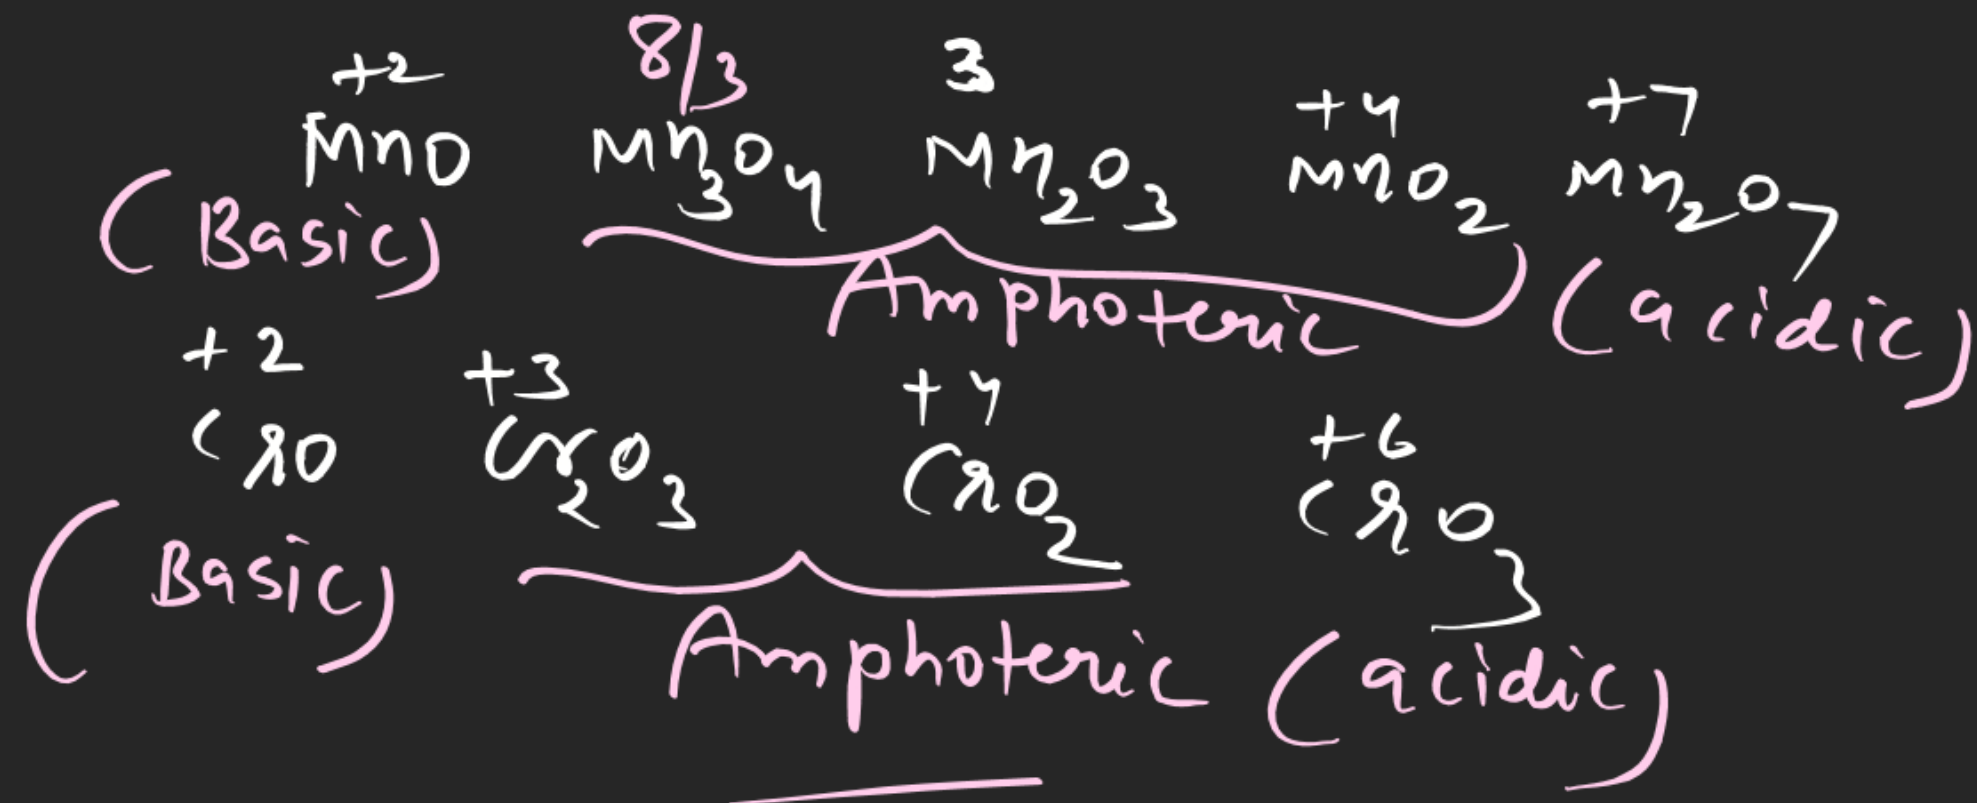 +2 8/3 3 +4 +7
MnO Mn3O4 Mn2O3 MnO2 Mn2O7
(Basic) Amphoteric (acidic)
+2 +3 +4 +6
CrO Cr2O3 CrO2 CrO3
(Basic) Amphoteric (acidic)